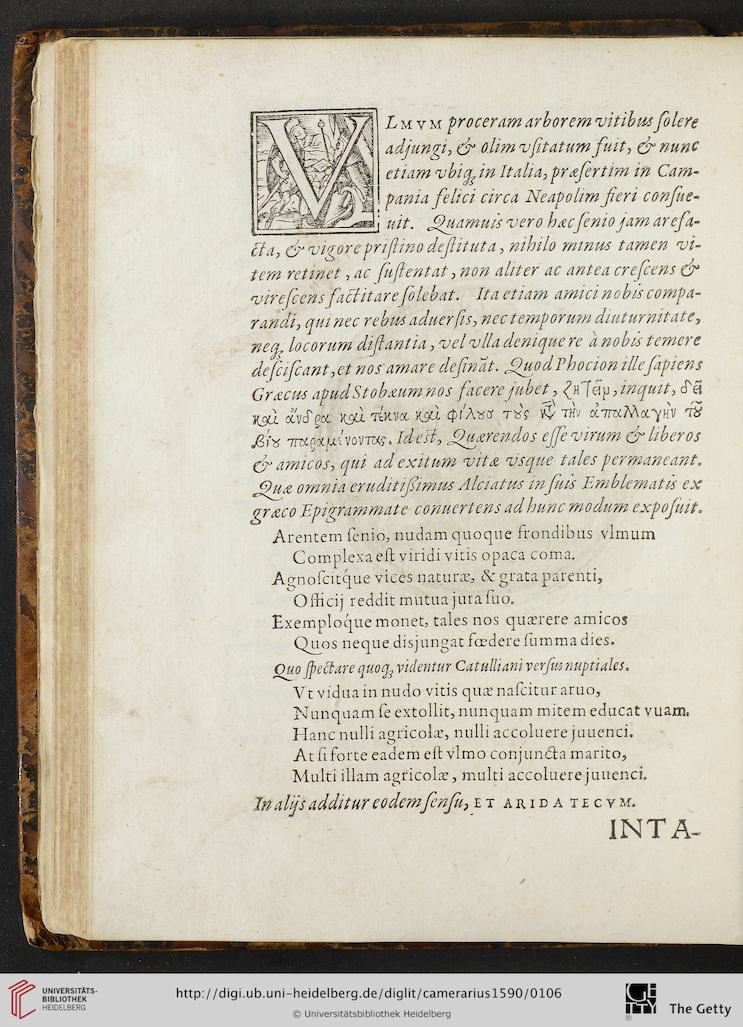 VLMVM proceram arborem vitibus ſolere
adjungi, & olim vſitatum fuit, & nunc
etiam vbiq; in Italia, præſertim in Cam-
pania felici circa Neapolim fieri conſue-
uit. Quamuis vero hæc ſenio jam arefa-
cta, & vigore priſtino deſtituta, nihilo minus tamen vi-
tem retinet, ac ſuſtentat, non aliter ac antea creſcens &
vireſcens factitare ſolebat. Ita etiam amici nobis compa-
randi, qui nec rebus aduerſis, nec temporum diuturnitate,
neq; locorum diſtantia, vel vlla denique re à nobis temere
deſciſcant, et nos amare deſināt. Quod Phocion ille ſapiens
Græcus apud Stobæum nos facere jubet, ζητεῖν, inquit, δεῖ
καὶ ἄνδρα καὶ τέκνα καὶ φίλȣς τȣ̀ς τὴν ἀπαλλαγὴν τȣ͂
βίȣ παραμένοντας. Id est, Quærendos eſſe virum & liberos
& amicos, qui ad exitum vitæ vsque tales permaneant.
Quæ omnia eruditiſsimus Alciatus in ſuis Emblematis ex
græco Epigrammate conuertens ad hunc modum expoſuit.
Arentem ſenio, nudam quoque frondibus vlmum
Complexa eſt viridi vitis opaca coma.
Agnoſcitq́ue vices naturæ, & grata parenti,
Officij reddit mutua jura ſuo.
Exemploq́ue monet, tales nos quærere amicos
Quos neque disjungat fœdere ſumma dies.
Quo ſpectare quoq; videntur Catulliani verſus nuptiales.
Vt vidua in nudo vitis quæ naſcitur aruo,
Nunquam ſe extollit, nunquam mitem educat vuam.
Hanc nulli agricolæ, nulli accoluere juuenci.
At ſi forte eadem eſt vlmo conjuncta marito,
Multi illam agricolæ, multi accoluere juuenci.
In alijs additur eodem ſenſu, ET ARIDA TECVM.
INTA-
UNIVERSITÄTS-
BIBLIOTHEK
HEIDELBERG
http://digi.ub.uni-heidelberg.de/diglit/camerarius1590/0106
© Universitätsbibliothek Heidelberg
GETTY
The Getty